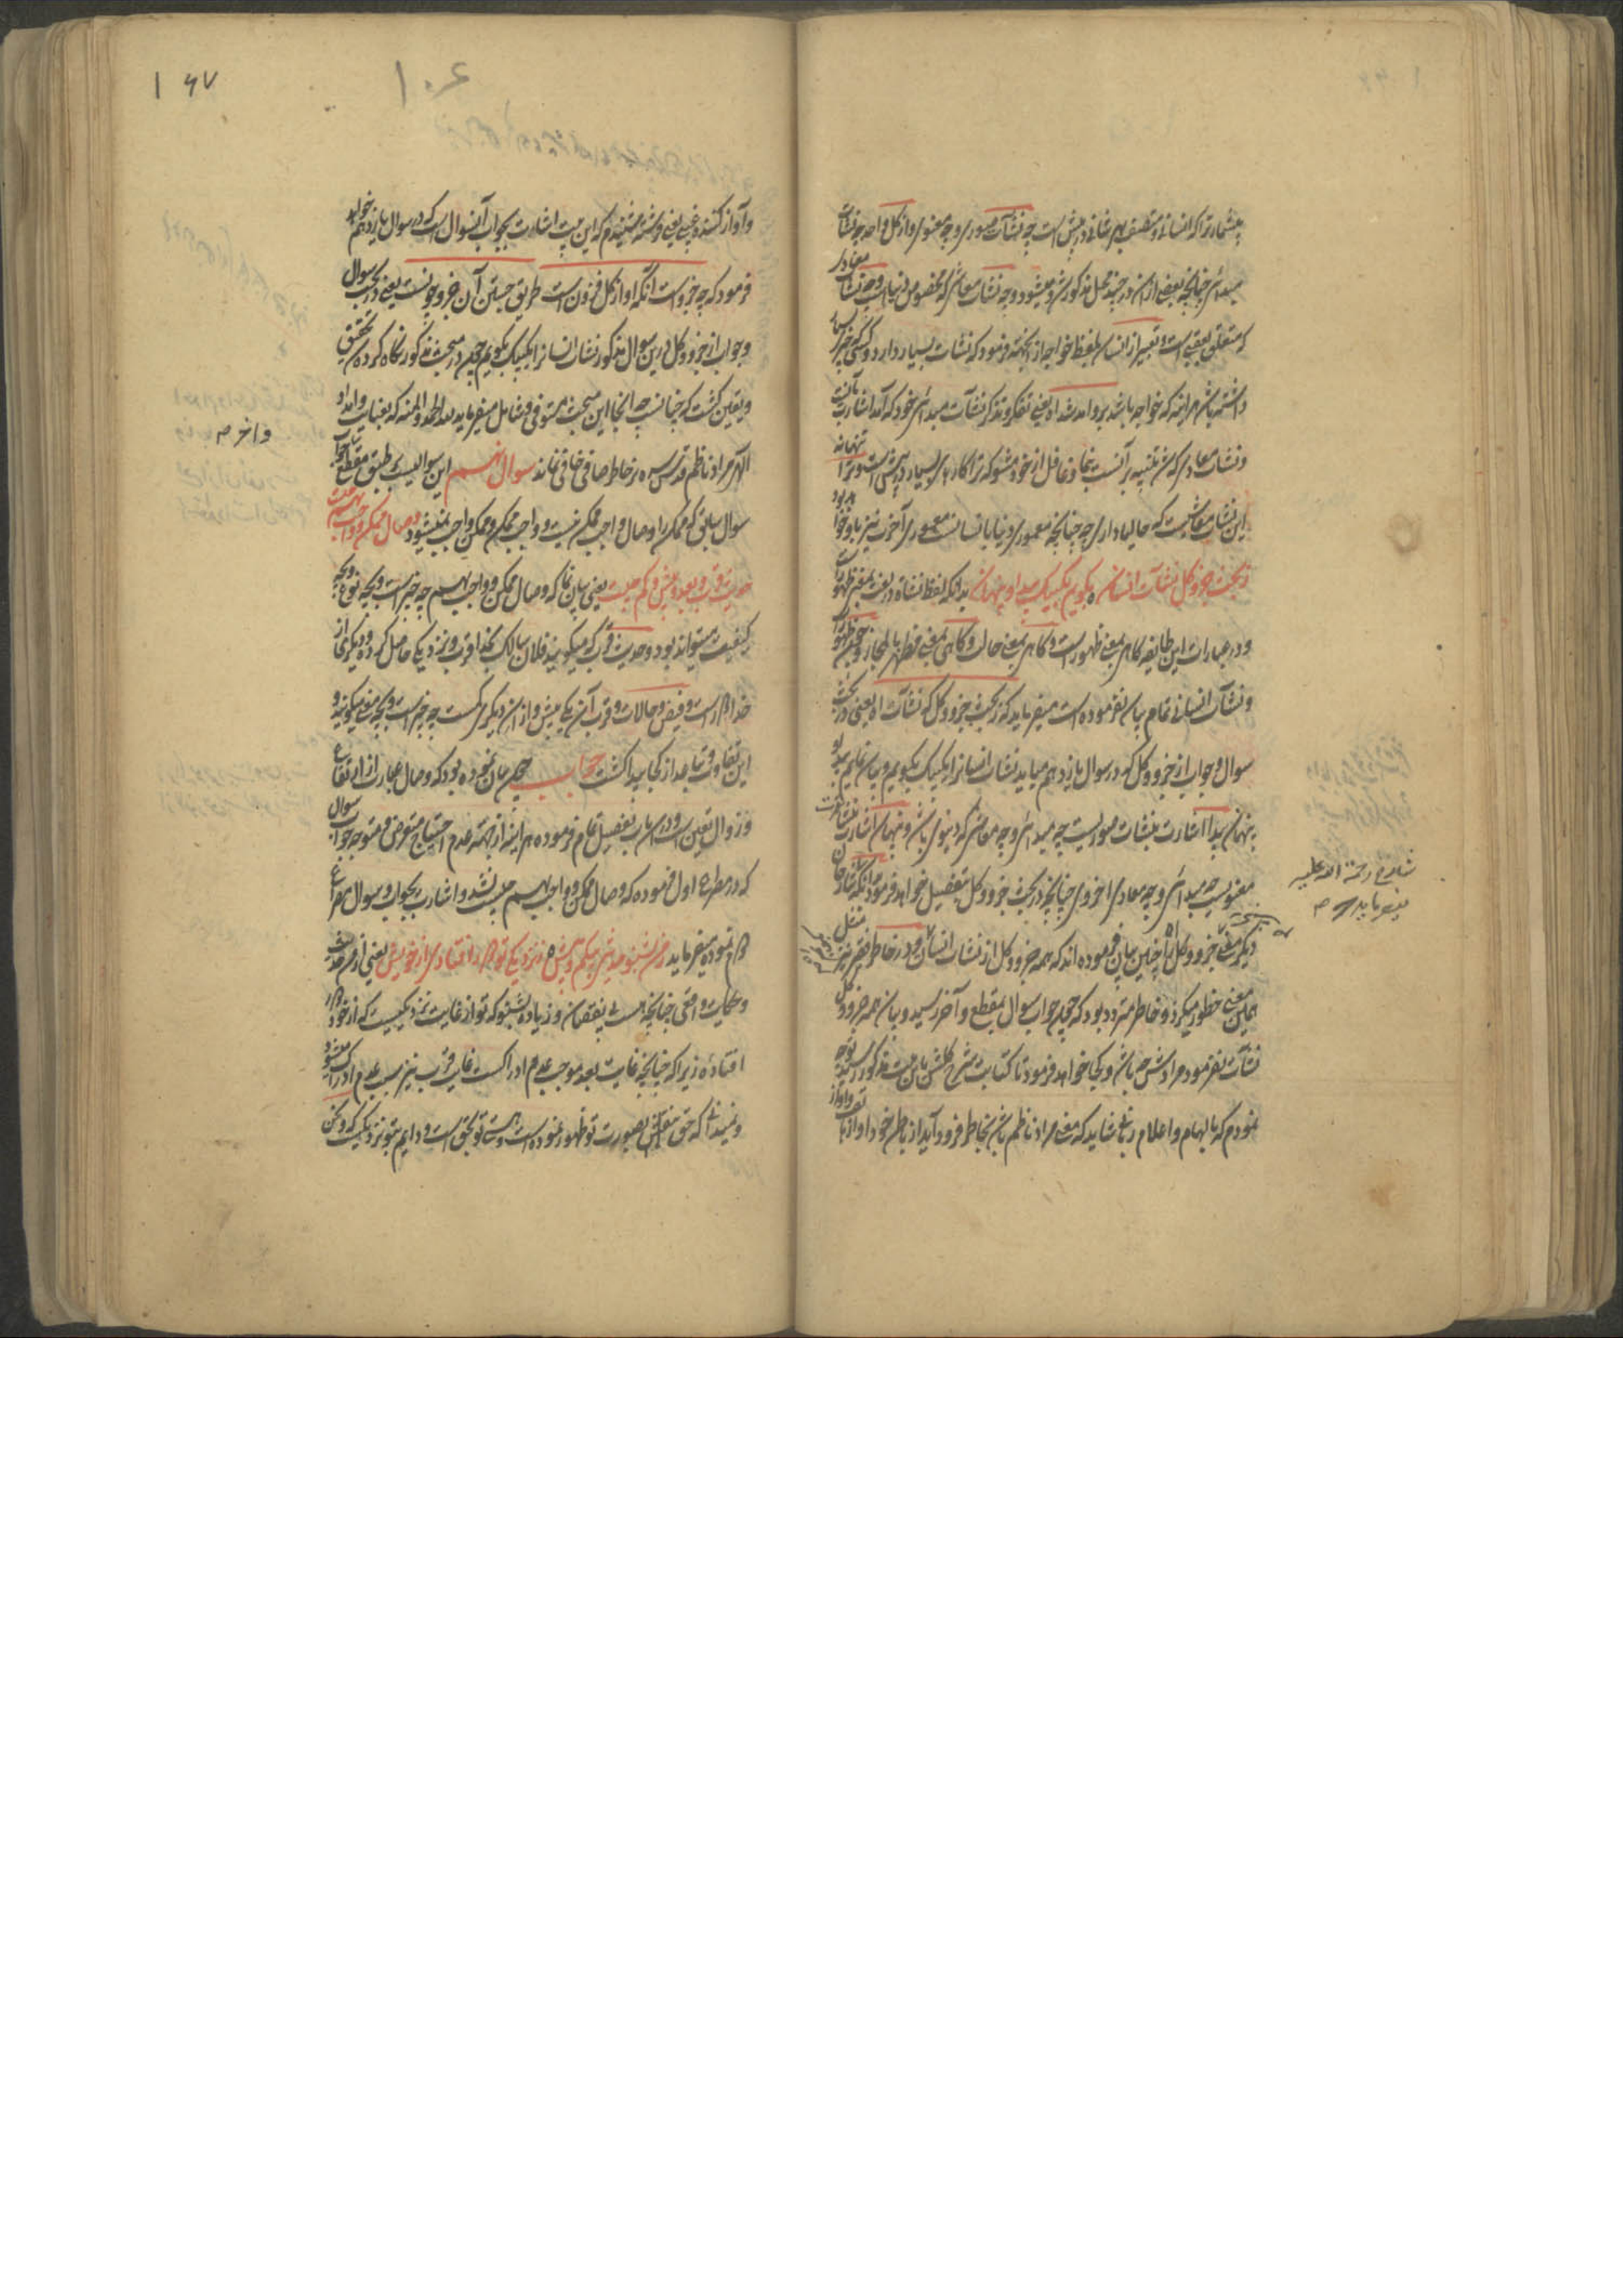 بیشمار ترا که انسانی و متصف بهر شانی در پیش است چه نشآت صوری و چه معنوی و از کل واحد چه نشآت
مبدائی چنانچه بعضی ازان در چند محل مذکور شد و میشود و چه نشآت معاشی که مخصوص دنیاست و چه نشآت معادی
که متعلق بعقبی است و تعبیر از انسان بلفظ خواجه از آنجهته فرمود که نشآت بسیار دارد و کسی که چیز بسیار
داشته باشد هر آئنه که خواجه باشد
و نشآت معادی که شد تنبیه بر آنست بنجا و غافل از خود مشو که ترا کارهای بسیار در پیش است و ترا تنها نه
این نشآت معاشیست که حالیا داری چه چنانچه معموری دنیا بانسانست معموری آخرت نیز باو خواهد بود
ز بحث جزو کل نشآت انسان بگویم یک بیک پیدا و پنهان بدانکه لفظ نشاه در لغت بمعنی ظهور است
و در عبارات این طایفه گاهی بمعنی ظهور است و گاهی بمعنی حال و گاهی بمعنی مظهر
و نشآت انسانی تمام بیان نفرموده است میفرماید که ز بحث جزو و کل که نشآت اه یعنی در بحث
سوال و جواب از جزو و کل که در سوال یازدهم میاید نشآت انسانرا یک بیک بگویم و بیان نمایم پیدا و
پنهان پیدا اشارت بنشآت صوریست چه مبدائی و چه معاشی که دنیوی باشد و پنهان اشارت بنشآت
معنویست چه مبدائی و چه معادی اخروی چنانچه در بحث جزو و کل بتفصیل خواهد فرمود
دیگر معنی جزو و کل را چنین بیان فرموده اند که همه جزو و کل از نشآت انسان و در خاطر فقیر نیز
همین معنی خطور میکرد و خاطر متردد بود که چون جواب سوال بمقطع و آخر رسید و بیان همه جزو و کل
نشآت نفرمود مرادش چه باشد و کجا خواهد فرمود تا کتابت شرح گلشن باین بیت مذکور رسید توجه
نمودم که بالهام و اعلام ربانی شاید که معنی مراد ناظم باشد بخاطر فرود آید از باطن خود آواز
شارح رحمة الله علیه
میفرماید که
و آواز کننده غیبی یعنی فرشته شنیدم که این بیت اشارت بجواب آنسوال است که در سوال یازدهم خواهد
فرمود که چه جزو است آنکه او از کل فزون است طریق جستن آن جزو چونست یعنی در بحث سوال
و جواب از جزو و کل درین سوال مذکور نشآت انسانرا یک بیک بگویم چون در مبحث مذکور نگاه کرده شد تحقیق
و یقین گشت که چنانست چه آنجا این مبحث مستوفی و شامل میفرماید لله الحمد و المنه که بعنایت و امداد
الهی مراد ناظم قدس سره بر خاطر صافی خافی نماند سوال نهم این سوالیست بر طبق مقطع جواب
سوال سابق که ممکن را وصال واجب ممکن نیست و واجب ممکن و ممکن واجب نمیشود وصال ممکن و واجب بهم چیست
حدیث قرب و بعد و بیش و کم چیست یعنی بیان نما که وصال ممکن و واجب بهم چه چیز است و بچه نوع و بچه
کیفیت میتواند بود و حدیث قرب که میگویند فلان سالک بخدا قرب و نزدیکی حاصل کرده و دیگری از
خدا دور است و فیض و حالات و قرب آن یکی بیش و ازان دیگری کمست چه چیز است و بچه معنی میگویند و
این تفاوت و تباعد از کجا پیدا گشت جواب چون بیان نموده بود که وصال عبارت از ارتفاع
و زوال تعین است و درین باب تفصیل تمام فرموده هر آینه از جهته عدم احتیاج متعرض و متوجه جواب سوال
که در مصرع اول فرموده که وصال ممکن و واجب بهم چیست نشد و اشارت بجواب سوال مصراع
دوم نموده میفرماید ز من بشنو حدیث بی کم و بیش ز نزدیکی تو دور افتادی از خویش یعنی از من حدیث
و حکایت واقعی چنانچه هست بی نقصان و زیاده بشنو که تو از غایت نزدیکیست که از خود دور
افتاده زیرا که چنانچه غایت بعد موجب عدم ادراکست غایت قرب نیز سبب عدم ادراک میشود
و نمیدانی که حق مطلق بصورت تو ظهور نموده است و هستی تو بحق است و دایم بتو نزدیکست
و آخر
۱۶۷
۱۰۶